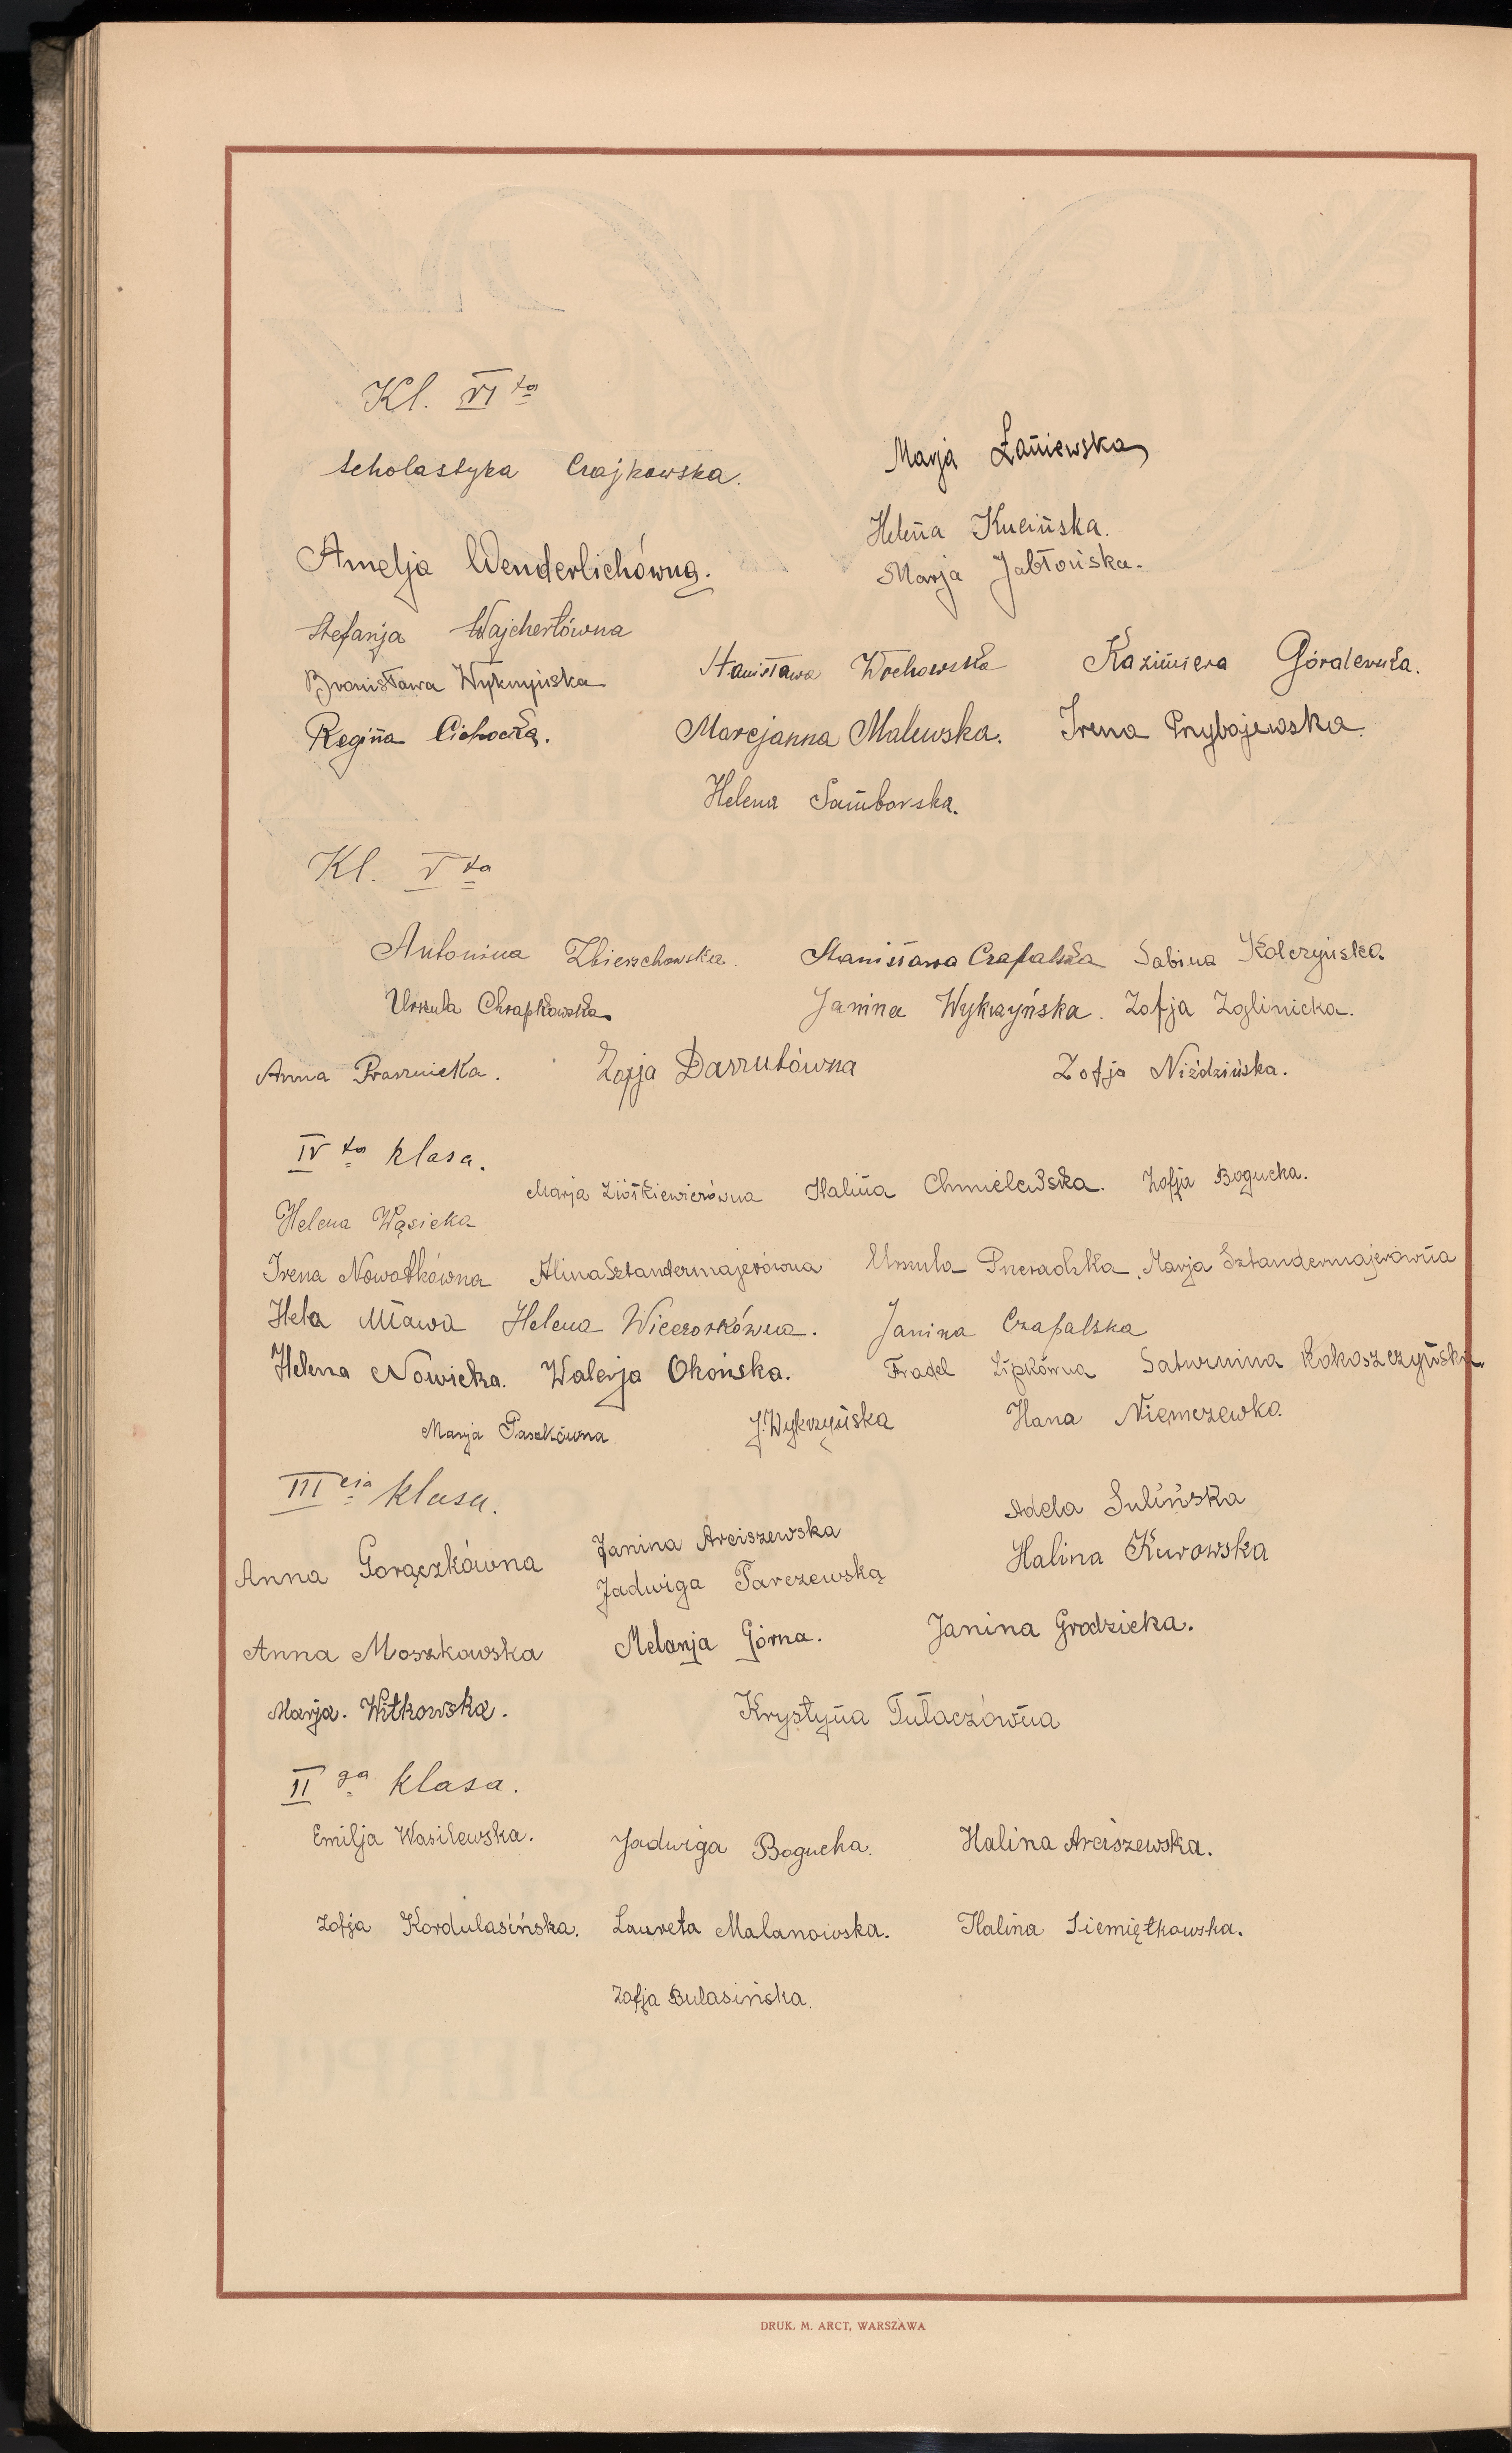 Kl. VI ta
Scholastyka Czajkowska.
Marja Łaniewska
Helena Kucińska.
Amelja Wenderlichówna.
Marja Jabłońska.
Stefanja Wajchertówna
Bronisława Wykrzyńska
Stanisława Włochowska
Kazimiera Góralewska.
Regina Cichocka.
Marcjanna Malewska.
Irena Przybojewska.
Helena Samborska.
Kl. V ta
Antonina Zbierzchowska.
Stanisława Czapalska
Sabina Kolczyńska.
Urszula Chrapkowska.
Janina Wykrzyńska.
Zofja Zglinicka.
Anna Prasznicka.
Zofja Darzutówna
Zofja Niździńska.
IV ta klasa.
Marja Ziółkiewiczówna
Halina Chmielewska.
Zofja Bogucka.
Helena Wąsicka
Irena Nowotkówna
Alina Sztandermajerówna
Urszula Przeradzka.
Marja Sztandermajerówna
Hela Mława
Helena Wieczorkówna.
Janina Czapalska
Helena Nowicka.
Walerja Okońska.
Fradel Lipkówna
Saturnina Kokoszczyńska
Marja Paszkówna
J. Wykrzyńska
Hana Niemczewko.
III cia klasa.
Adela Sulińska
Janina Arciszewska
Halina Kurowska
Anna Gorączkówna
Jadwiga Tarczewska
Janina Grodzicka.
Anna Moszkowska
Melanja Górna.
Marja. Witkowska.
Krystyna Tułaczówna
II ga klasa.
Emilja Wasilewska.
Jadwiga Bogucka.
Halina Arciszewska.
Zofja Kordulasińska.
Laureta Malanowska.
Halina Siemiętkowska.
Zofja Bulasińska.
DRUK. M. ARCT, WARSZAWA